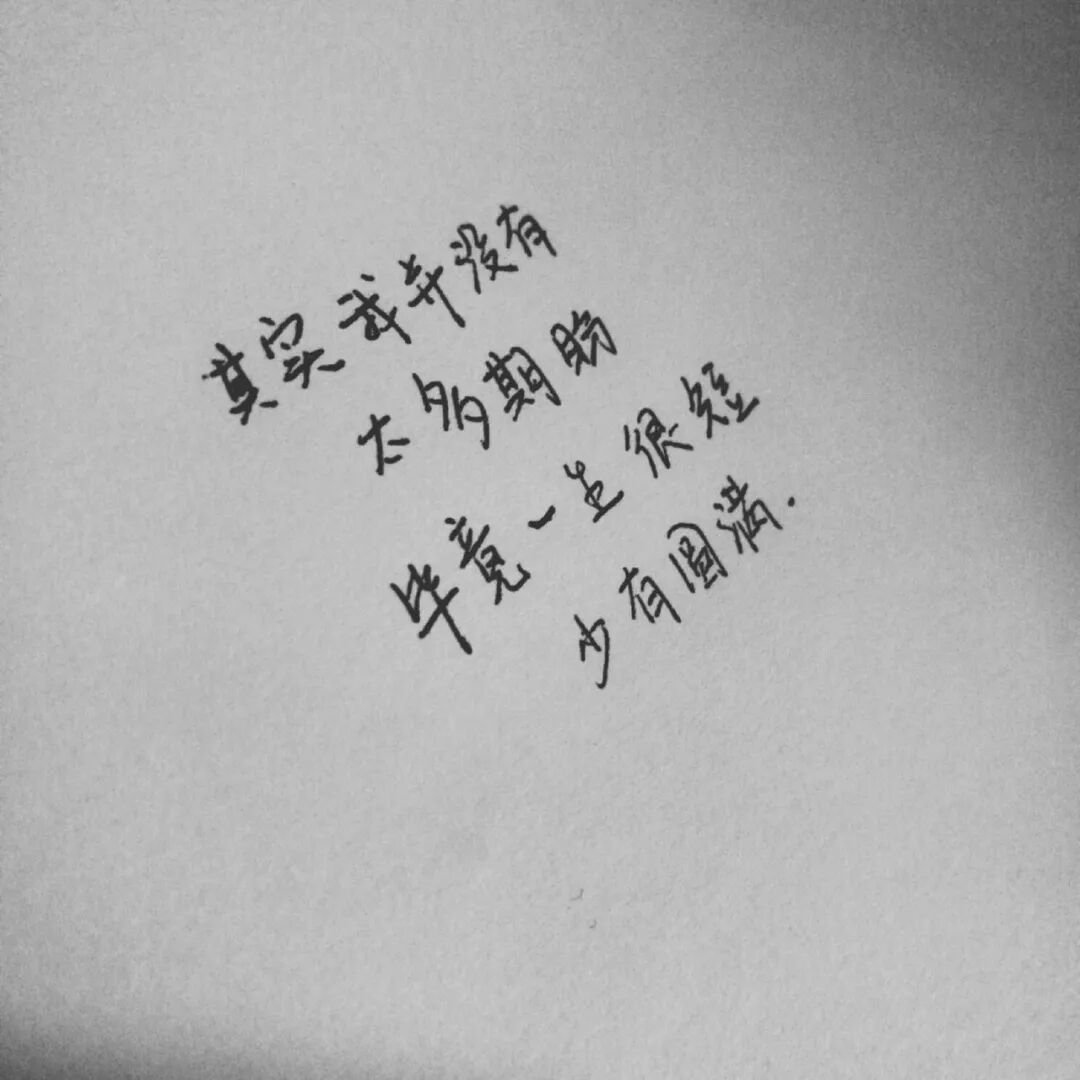 其实我并没有
太多期盼
毕竟一生很短
少有圆满.